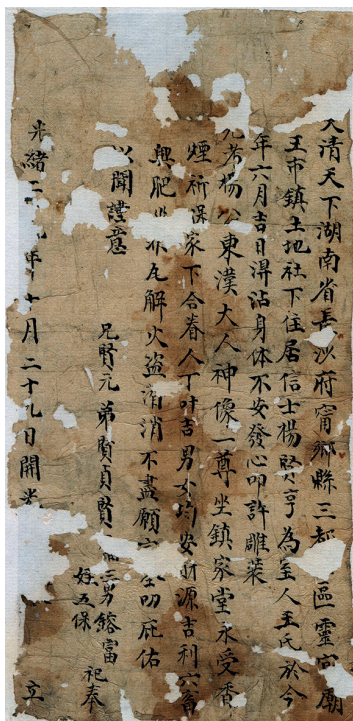 大清天下湖南省長沙府甯鄉縣三都 區靈官廟
王市鎮土地社下住居信士楊賢亨為室人王氏於今
年六月吉日淂沾身体不安發心叩許雕裝
先考楊公東漢大人神像一尊坐鎮家堂永受香
煙祈保家下合眷人丁叶吉男女均安財源吉利六畜
興肥 瓦解火盜消不盡願 叩庇佑
以聞謹意
兄賢元弟賢貞賢 三男鎔富
姪五保
祀奉
光緒二 年十月二十九日開光 立